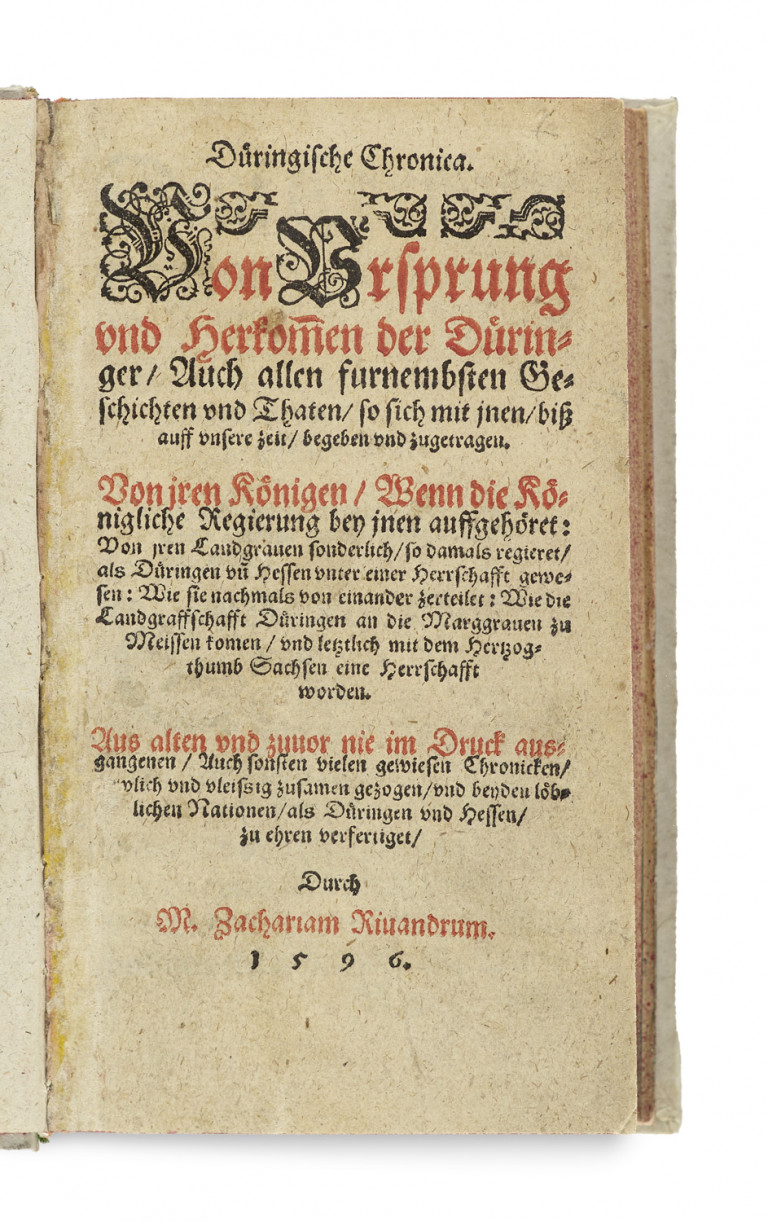 Düringische Chronica.
Von Vrsprung
vnd Herkom̃en der Dürin-
ger/ Auch allen furnembsten Ge-
schichten vnd Thaten/ so sich mit jnen/ biß
auff vnsere zeit/ begeben vnd zugetragen.
Von jren Königen/ Wenn die Kö-
nigliche Regierung bey jnen auffgehöret:
Von jren Landgrauen sonderlich/ so damals regieret/
als Düringen vn̄ Hessen vnter einer Herrschafft gewe-
sen: Wie sie nachmals von einander zerteilet: Wie die
Landgraffschafft Düringen an die Marggrauen zu
Meissen komen/ vnd letztlich mit dem Hertzog-
thumb Sachsen eine Herrschafft
worden.
Aus alten vnd zuuor nie im Druck aus-
gangenen/ Auch sonsten vielen gewissen Chronicken/
vnd vleissig zusamen gezogen/ vnd beyden löb-
lichen Nationen/ als Düringen vnd Hessen/
zu ehren verfertiget/
Durch
M. Zachariam Riuandrum.
1 5 9 6.